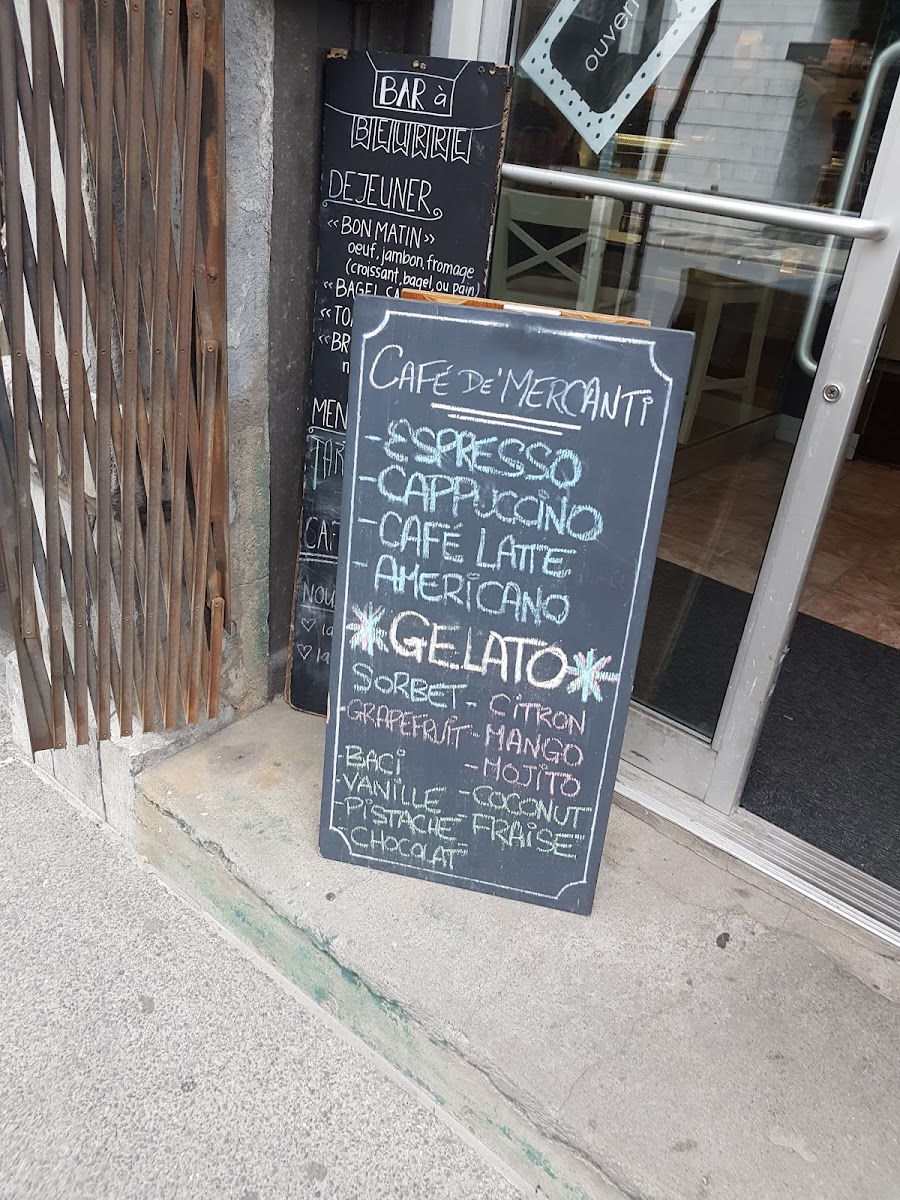 ouvert
BAR à
BEURRE
DEJEUNER
«BON MATIN»
oeuf, jambon, fromage
(croissant, bagel, ou pain)
«BAGEL
CAFÉ DE' MERCANTI
-ESPRESSO
-CAPPUCCINO
-CAFÉ LATTE
-AMERICANO
GELATO
SORBET - CITRON
-GRAPEFRUIT -MANGO
-MOJITO
-BACI
-VANILLE -COCONUT
-PISTACHE -FRAISE
-CHOCOLAT